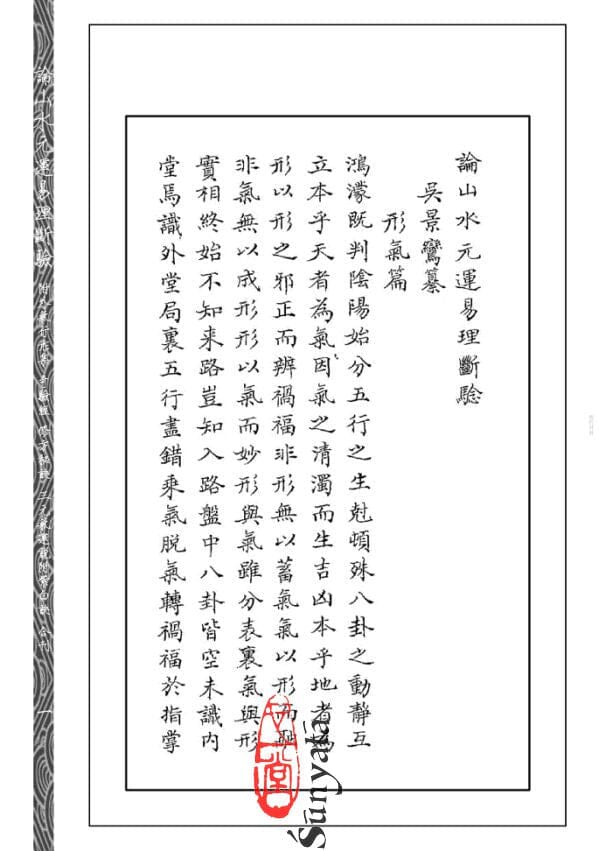 論山水元運易理斷驗
吳景鸞纂
形氣篇
鴻濛既判陰陽始分五行之生尅頓殊八卦之動靜互
立本乎天者為氣因氣之清濁而生吉凶本乎地者為
形以形之邪正而辨禍福非形無以蓄氣氣以形而
非氣無以成形形以氣而妙形與氣雖分表裏氣與形
實相終始不知来路豈知入路盤中八卦皆空未識內
堂焉識外堂局裏五行盡錯乘氣脫氣轉禍福於指掌
論山水元運易理斷驗
合刊
一
Śūnyatā